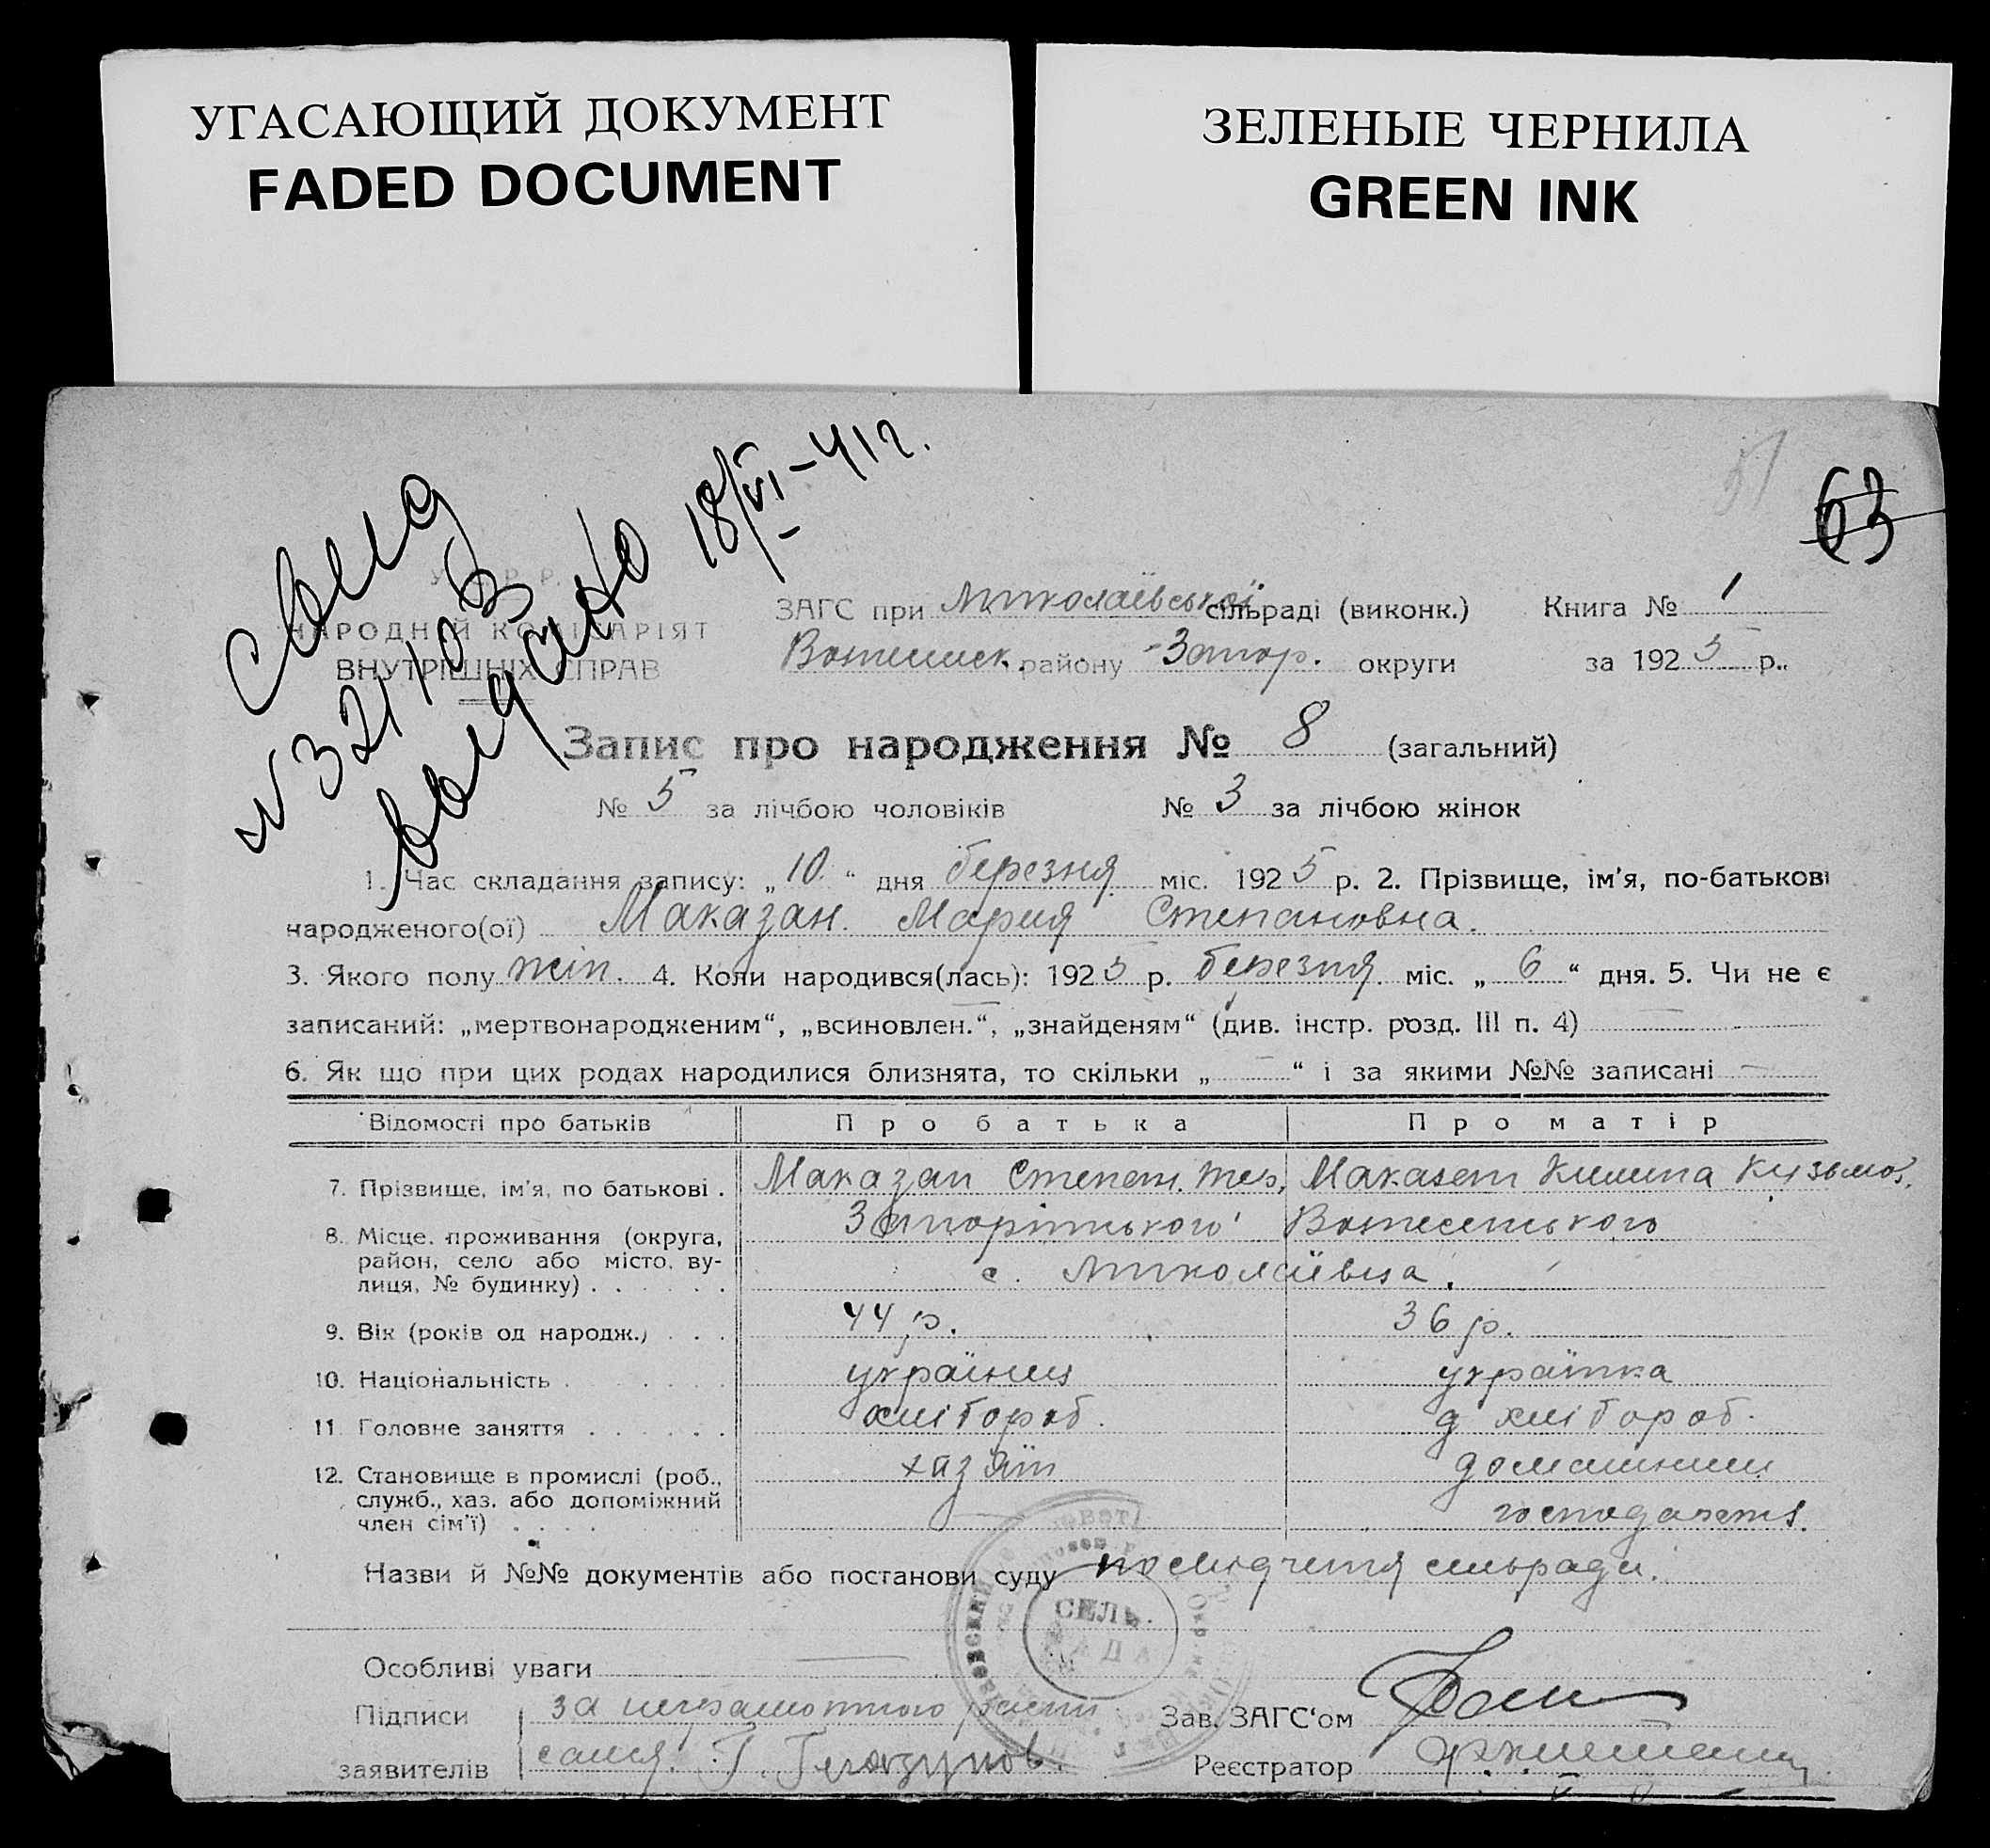 УГАСАЮЩИЙ ДОКУМЕНТ
FADED DOCUMENT
ЗЕЛЕНЫЕ ЧЕРНИЛА
GREEN INK
63
свид
№ 321103
выдано 18/VI-41г.
У. С. Р. Р.
НАРОДНІЙ КОМІСАРІЯТ
ВНУТРІШНІХ СПРАВ
ЗАГС при Миколаївської сільраді (виконк.) Книга № 1
району Запор. округи за 1925 р..
Запис про народження № 8 (загальний)
№ 5 за лічбою чоловіків № 3 за лічбою жінок
1. Час складання запису: „10“ дня березня міс. 1925 р. 2. Прізвище, ім'я, по-батькові
народженого(ої) Маказан Мария Степановна.
3. Якого полу жін. 4. Коли народився(лась): 1925 р. березня міс. „6“ дня. 5. Чи не є
записаний: „мертвонародженим“, „всиновлен.“, „знайденям“ (див. інстр. розд. III п. 4)
6. Як що при цих родах народилися близнята, то скільки „—“ і за якими №№ записані —
Відомості про батьків Про батька Про матір
7. Прізвище, ім'я, по батькові . Маказан Степан Маказан Килина Кузьмов.
8. Місце проживання (округа, район, село або місто, вулиця, № будинку) . . . . . Запоріжського Вознесенського
с. Миколаївка.
9. Вік (років од народж.) . . . 44 р. 36 р.
10. Національність . українец українка
11. Головне заняття . . . . . . хлібороб. д хлібороб.
12. Становище в промислі (роб., служб., хаз. або допоміжний член сім'ї) . . . . хазяїн домашним
господарств.
Назви й №№ документів або постанови суду посвідчення сільради.
СЕЛЬ.
РАДА
Особливі уваги —
Підписи за неграмотного
заявителів Г.
Зав. ЗАГС'ом
Реєстратор